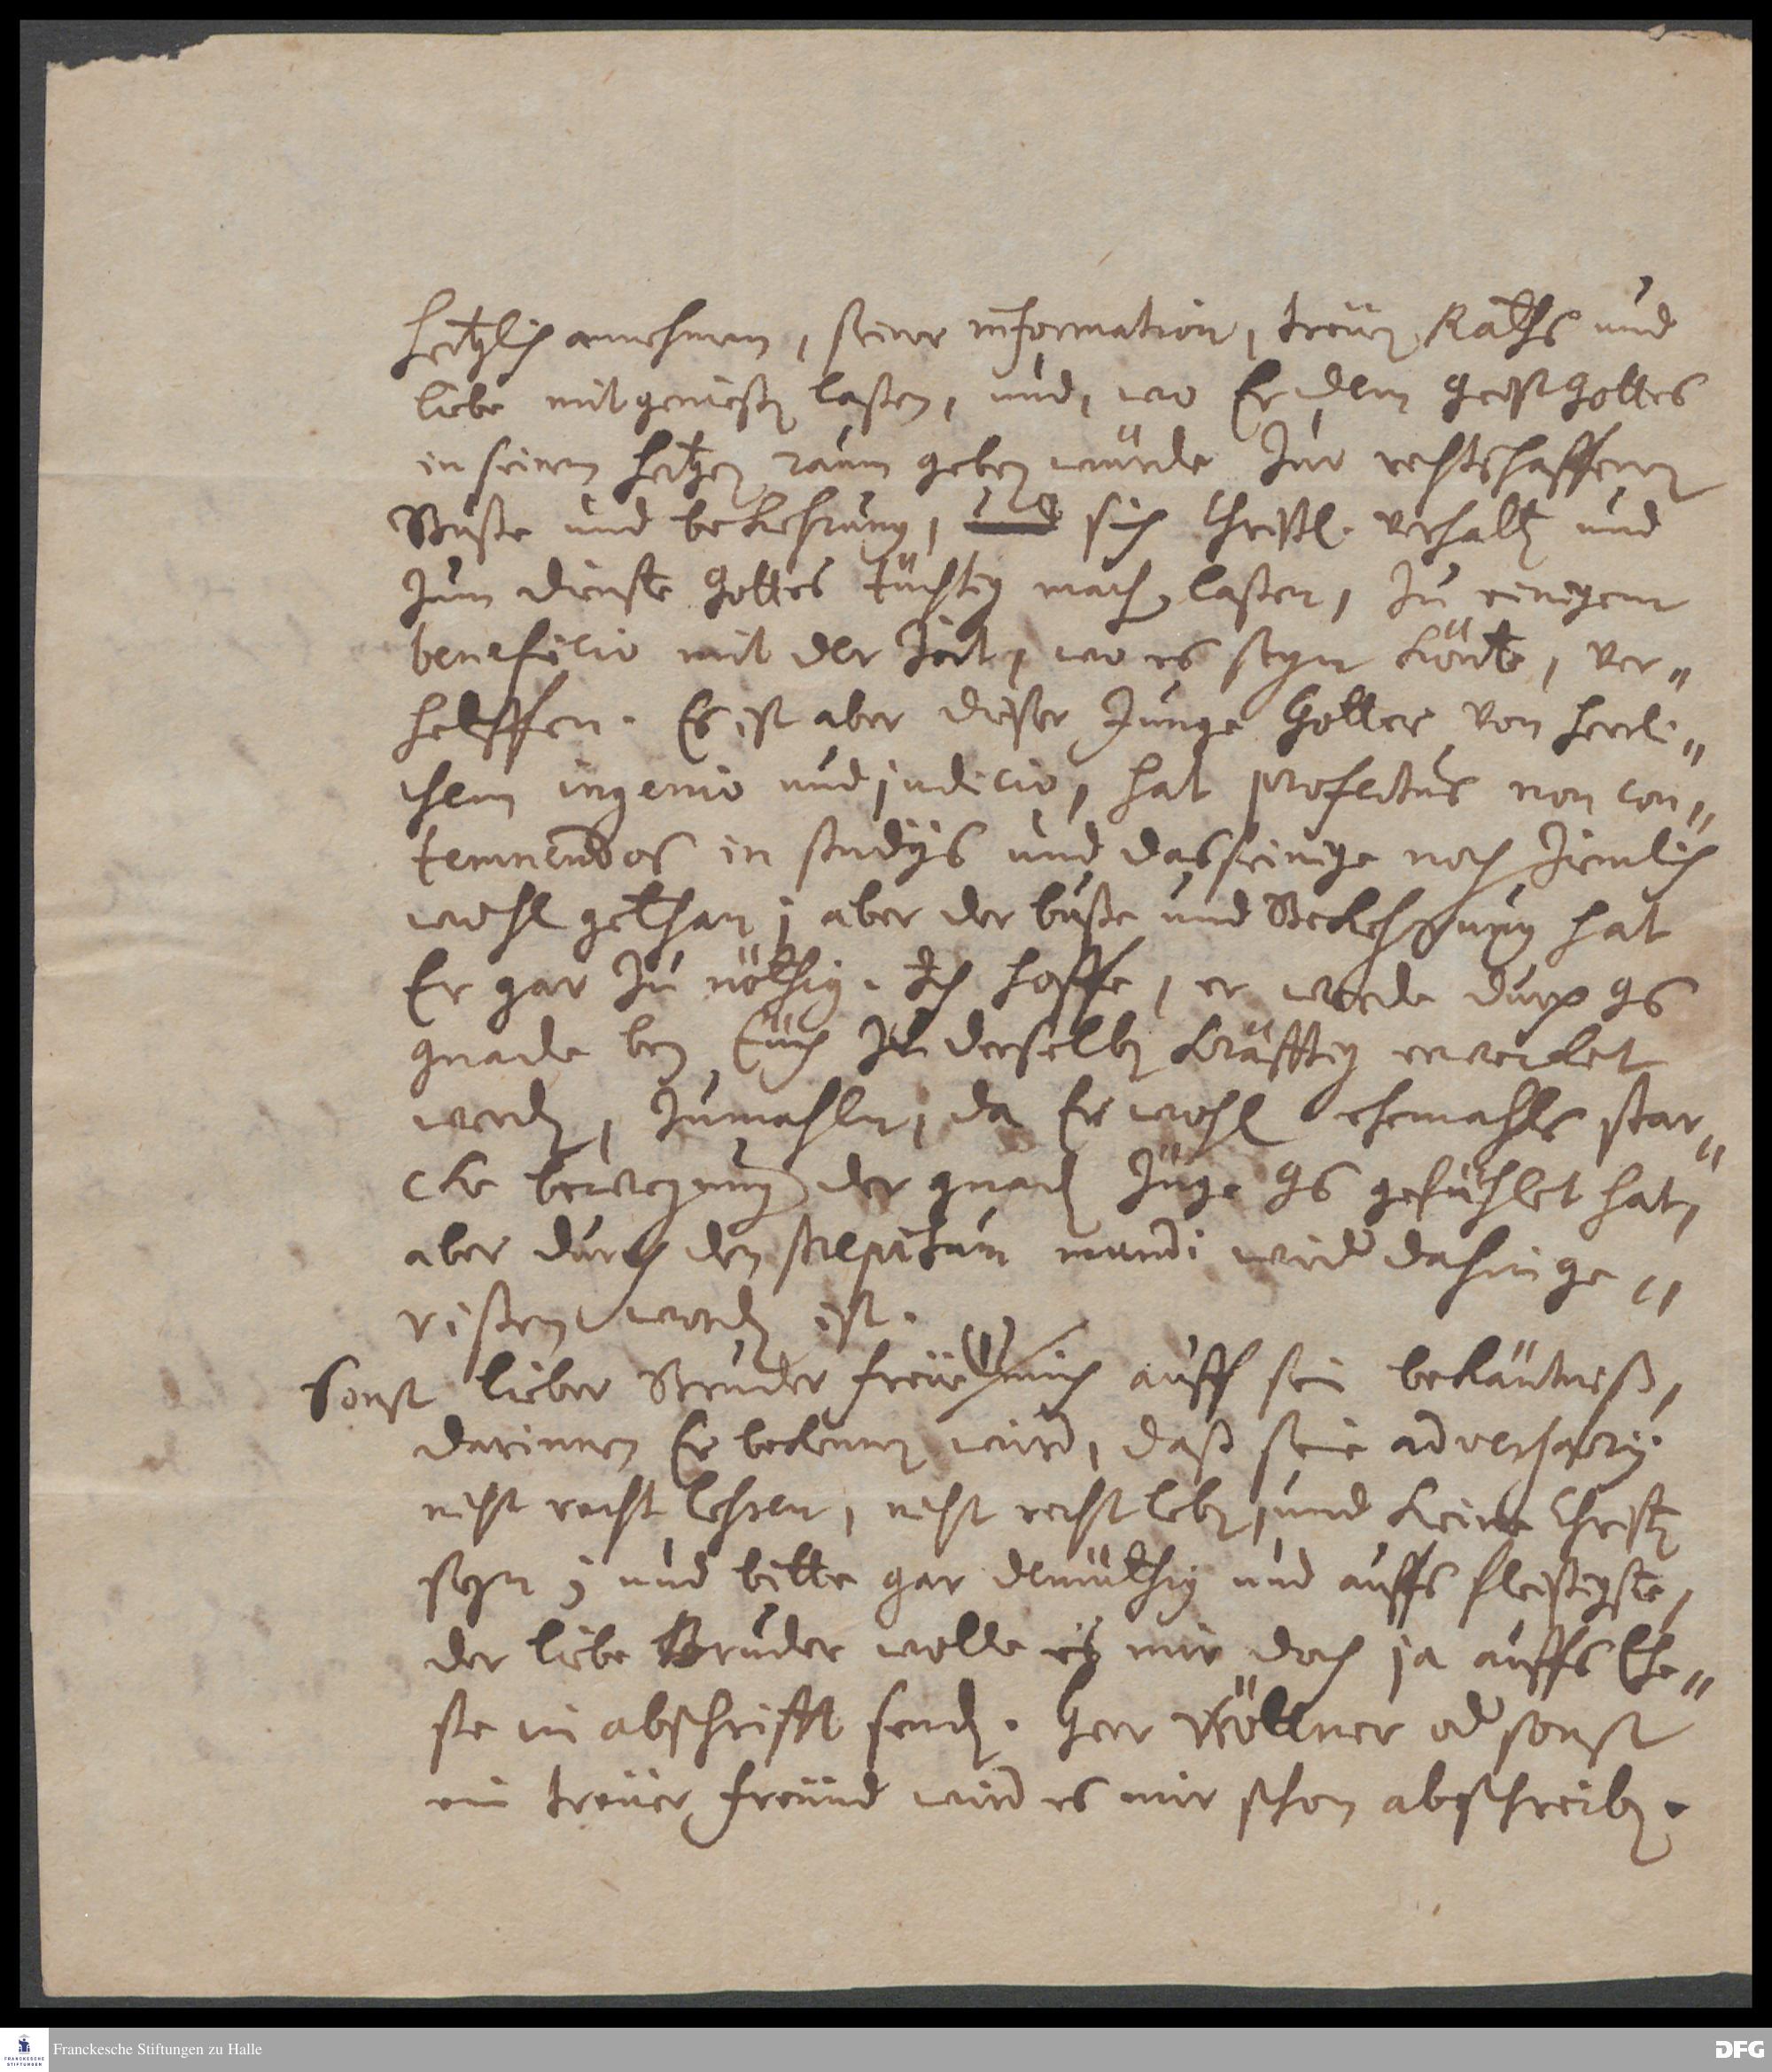 hertzlich annehmen, seiner information, treuen Raths und
liebe mit genießen laßen, und, wo Er dem Geist Gottes
in seinem hertzen raum geben würde zur rechtschaffenen
Buße und bekehrung, sich Christl. verhalten und
zum dienste Gottes tüchtig machen laßen, zu einigem
beneficio mit der Zeit, wo es seyn könte, ver„
helffen. Es ist aber dieser junge Gotter von herrli„
chem ingenio und judicio, hat profectus non con„
temnendos in studijs und das seinige noch ziemlich
wohl gethan; aber der buße und Bekehrung hat
Er gar zu nöthig. Ich hoffe, er werde durch Gs
gnade bey Euch zu derselben kräfftig erwecket
werden, zumahln, da Er wohl ehemahls star„
cke bewegung der gnaden Züge Gs gefühlet hat,
aber durch den strepitum mundi wieder dahin ge„
rißen worden ist.
Sonst lieber Bruder freue ich mich auff sein bekäntniß,
darinnen Er bekennen wird, daß seine adversarij
nicht recht lehren, nicht recht leben, und keine Christen
seyn; und bitte gar demüthig und auffs fleißigste,
der liebe Bruder wolle es mir doch ja auffs Ehe„
ste in abschrifft senden. Herr Wöllner oder sonst
ein treuer freund wird es mir schon abschreiben.
Franckesche Stiftungen zu Halle
FRANCKESCHE
STIFTUNGEN
DFG